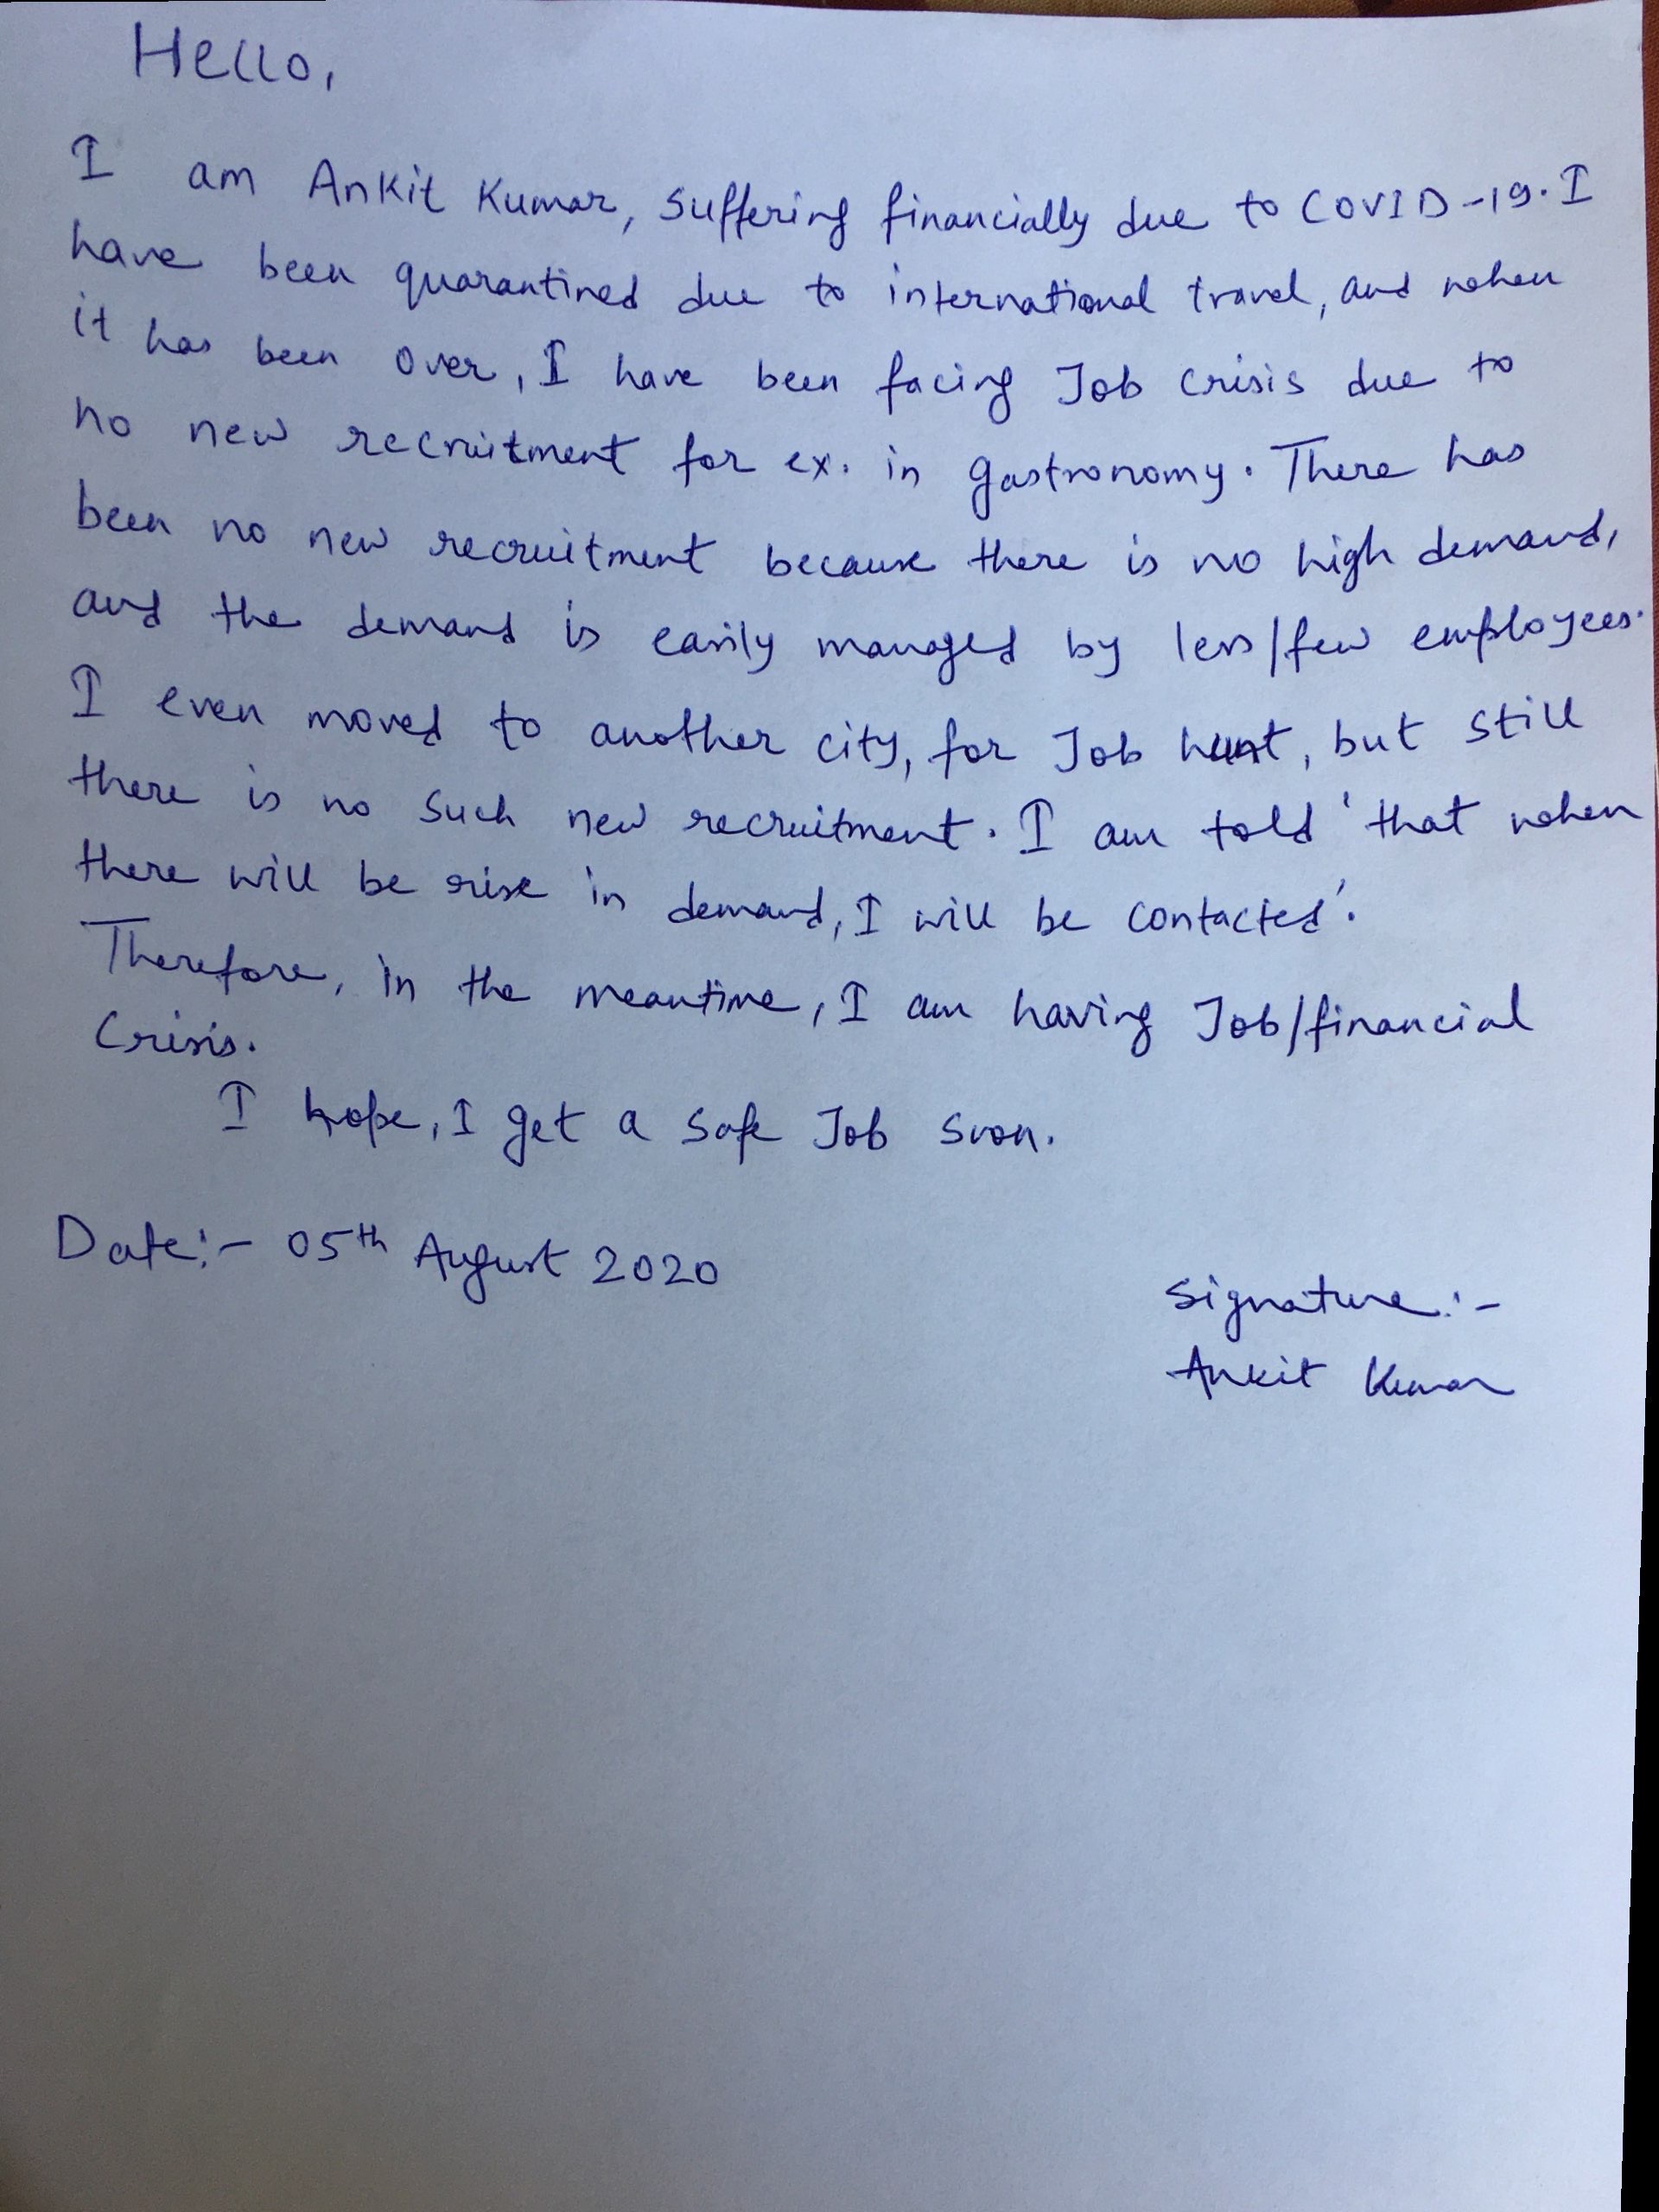 Hello,
I am Ankit Kumar, suffering financially due to COVID-19. I
have been quarantined due to international travel, and when
it has been over, I have been facing Job crisis due to
no new recruitment for ex. in gastronomy. There has
been no new recruitment because there is no high demand,
and the demand is easily managed by less/few employees.
I even moved to another city, for Job hunt, but still
there is no such new recruitment. I am told 'that when
there will be rise in demand, I will be contacted'.
Therefore, in the meantime, I am having Job/financial
Crisis.
I hope, I get a safe Job soon.
Date:- 05th August 2020
Signature:-
Ankit Kumar